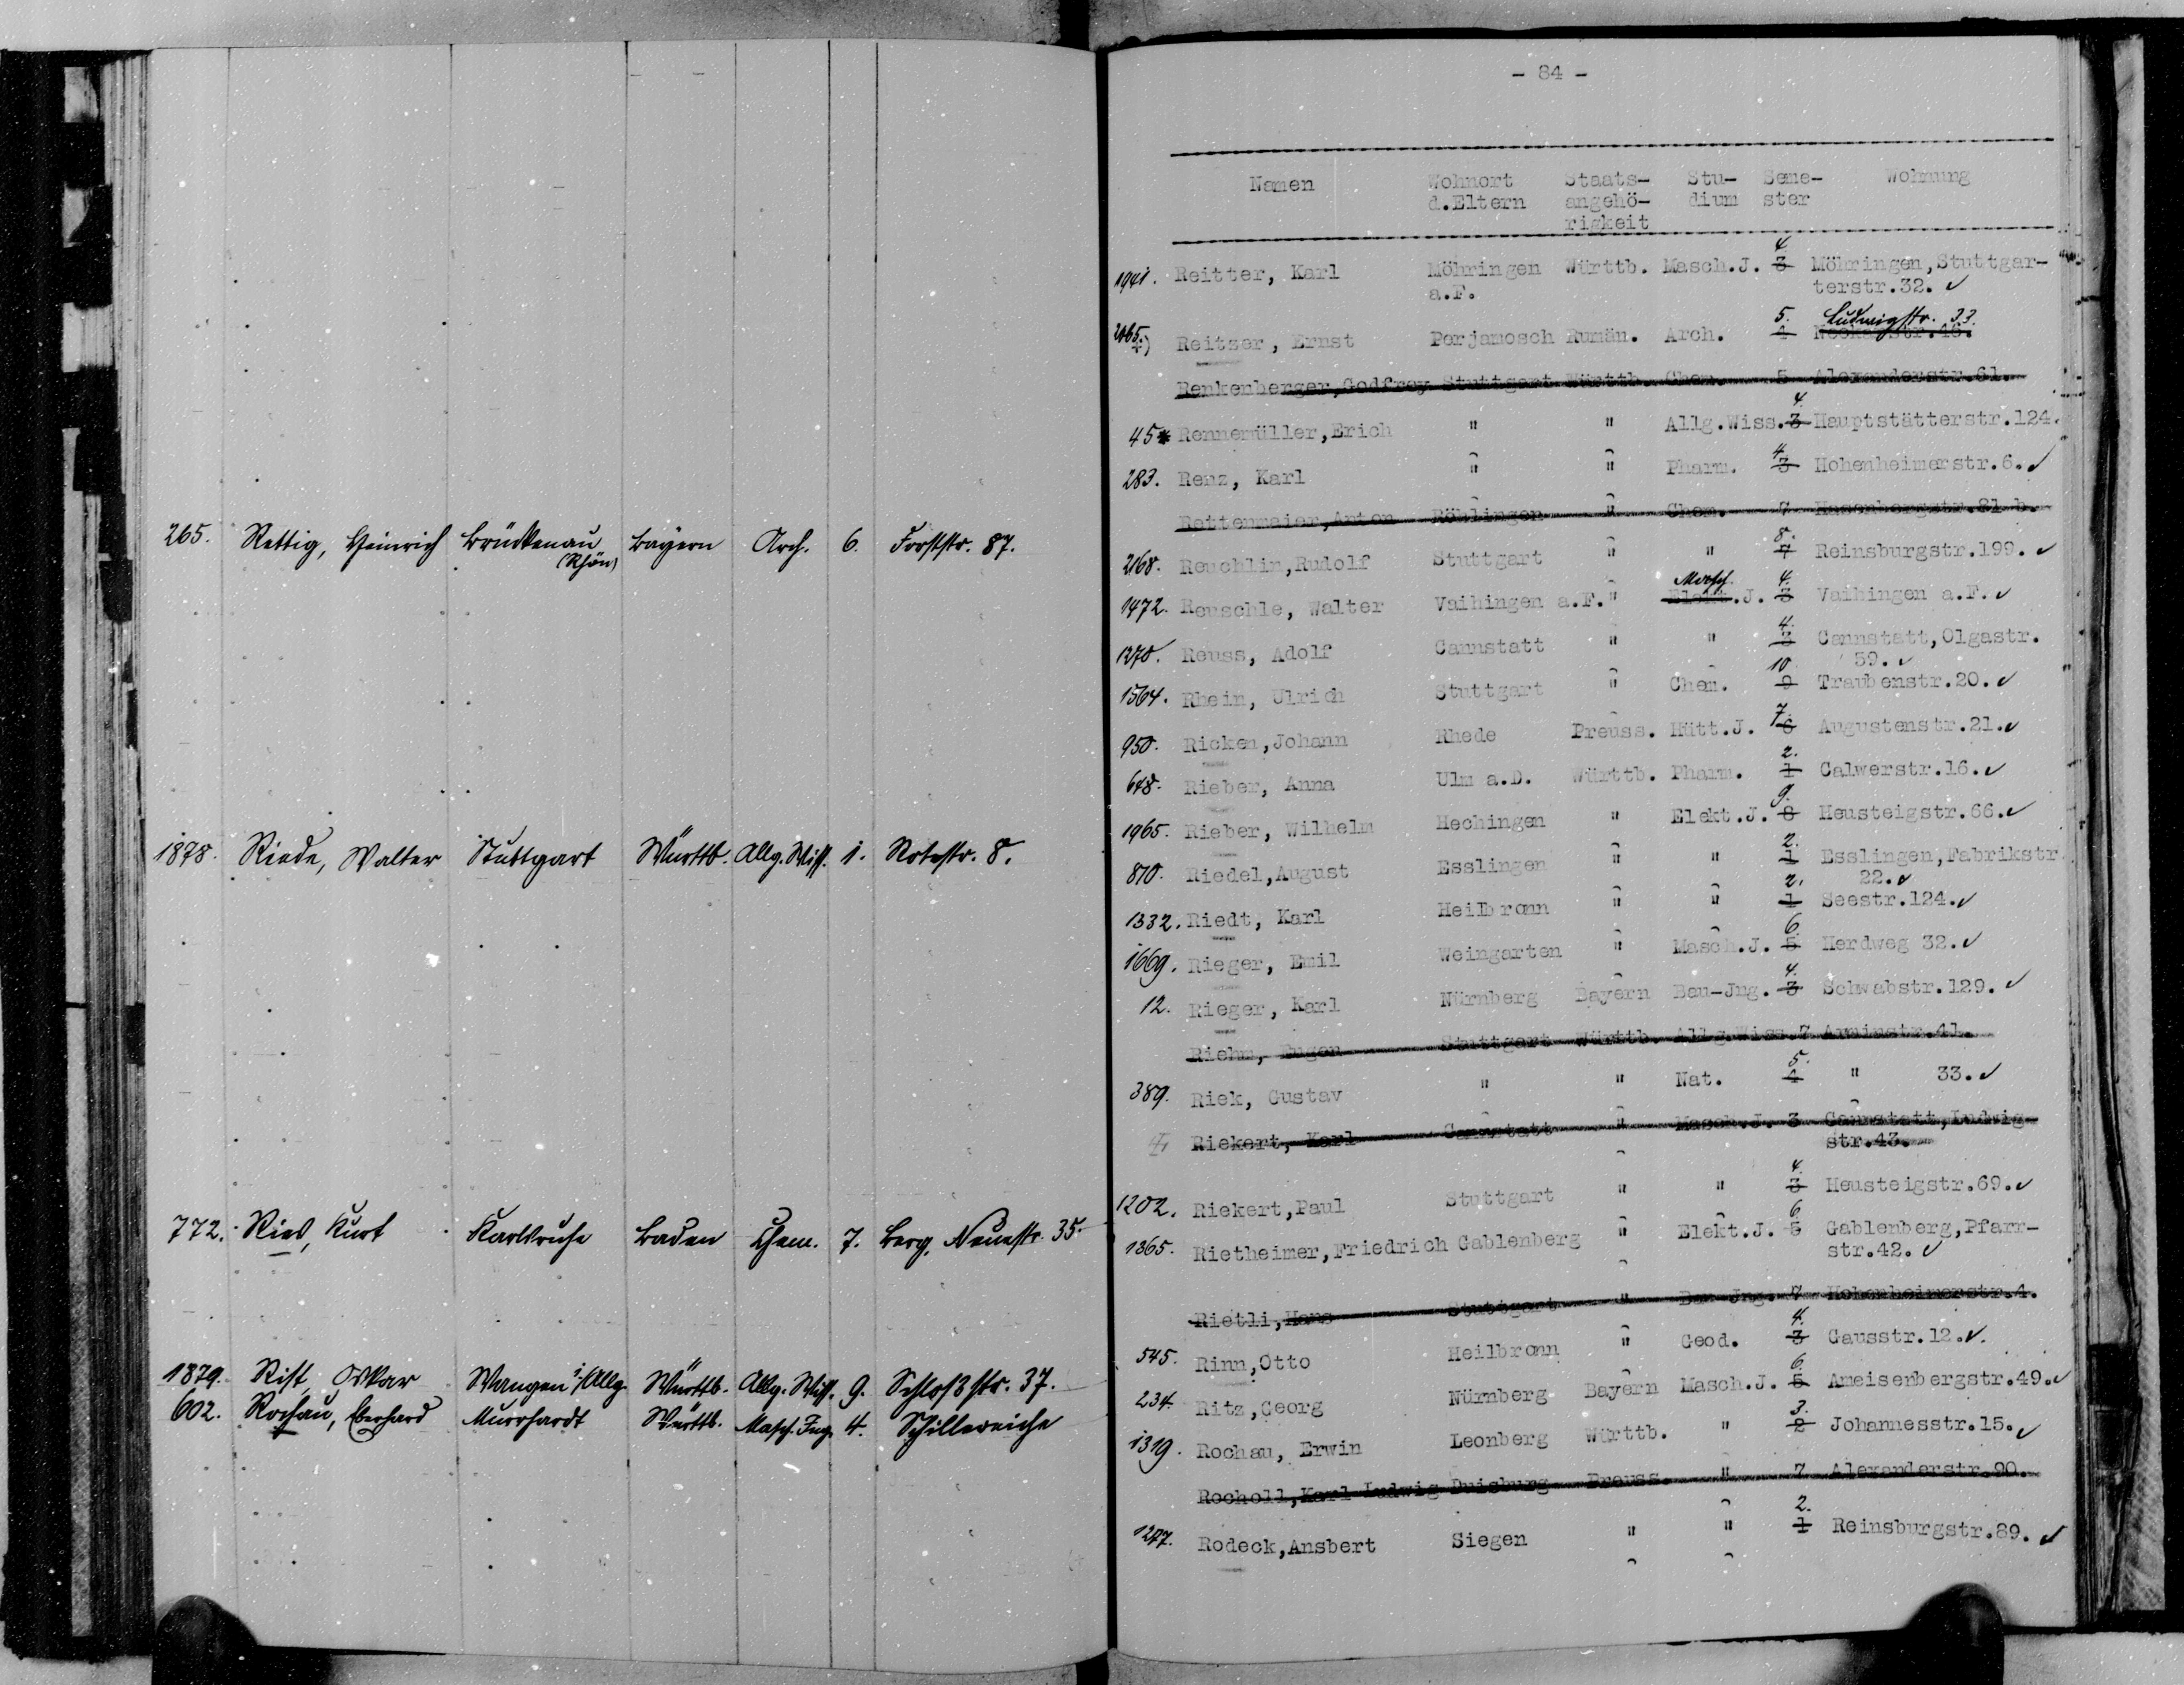 265. Rettig, Heinrich Brückenau Bayern Arch. 6. Forststr. 87.
(Rhön)
1878. Riede, Walter Stuttgart Württb. Allg. Wiss. 1. Rotestr. 8.
772. Ries, Kurt Karlsruhe Baden Chem. 7. Berg, Neuestr. 35.
1879. Rist, Oskar Wangen i/Allg. Württb. Allg. Wiss. 9. Schloßstr. 37.
602. Rochau, Eberhard Murrhardt Württb. Masch. Ing. 4. Schillereiche
- 84 -
Namen Wohnort Staats- Stu- Seme- Wohnung
d.Eltern angehö- dium ster
rigkeit
4
1941. Reitter, Karl Möhringen Württb. Masch.J. 3 Möhringen,Stuttgar-
a.F. terstr.32. ✓
5. Ludwigstr. 33.
2065. +) Reitzer, Ernst Perjamosch Rumän. Arch. 4 Neckarstr.48.
Renkenberger,Godfrey Stuttgart Württb. Chem. 5 Alexanderstr.61.
4.
45* Rennemüller,Erich " " Allg.Wiss. 3 Hauptstätterstr.124.
4
283. Renz, Karl " " Pharm. 3 Hohenheimerstr.6. ✓
Rettenmaier,Anton Röhlingen " Chem. 7 Hasenbergstr.81 b.
8.
2168. Reuchlin,Rudolf Stuttgart " " 7 Reinsburgstr.199. ✓
Masch. 4.
1472. Reuschle, Walter Vaihingen a.F. " Elekt.J. 3 Vaihingen a.F. ✓
4.
1270. Reuss, Adolf Cannstatt " " 3 Cannstatt,Olgastr.
59. ✓
10
1564. Rhein, Ulrich Stuttgart " Chem. 9 Traubenstr.20. ✓
7.
950. Ricken,Johann Rhede Preuss. Hütt.J. 6 Augustenstr.21. ✓
2.
648. Rieber, Anna Ulm a.D. Württb. Pharm. 1 Calwerstr.16. ✓
9.
1965. Rieber, Wilhelm Hechingen " Elekt.J. 8 Heusteigstr.66. ✓
2.
870. Riedel,August Esslingen " " 1 Esslingen,Fabrikstr.
22. ✓
2.
1332. Riedt, Karl Heilbronn " " 1 Seestr.124. ✓
6.
1669. Rieger, Emil Weingarten " Masch.J. 5 Herdweg 32. ✓
4.
12. Rieger, Karl Nürnberg Bayern Bau-Jng. 3 Schwabstr.129. ✓
Riehm, Eugen Stuttgart Württb. Allg.Wiss.7 Arminstr.41.
5.
389. Riek, Gustav " " Nat. 4 " 33. ✓
Riekert, Karl Cannstatt " Masch.J. 3 Cannstatt,Ludwig-
str.43.
4.
1202. Riekert,Paul Stuttgart " " 3 Heusteigstr.69. ✓
6
1365. Rietheimer,Friedrich Gablenberg " Elekt.J. 5 Gablenberg,Pfarr-
str.42. ✓
Rietli,Hans Stuttgart " Bau-Jng. 7 Hohenheimerstr.4.
4.
545. Rinn,Otto Heilbronn " Geod. 3 Gausstr.12. ✓.
6.
234. Ritz,Georg Nürnberg Bayern Masch.J. 5 Ameisenbergstr.49. ✓
3.
1319. Rochau, Erwin Leonberg Württb. " 2 Johannesstr.15. ✓
Rocholl,Karl Ludwig Duisburg Preuss. " 7 Alexanderstr.90.
2.
1277. Rodeck,Ansbert Siegen " " 1 Reinsburgstr.89. ✓